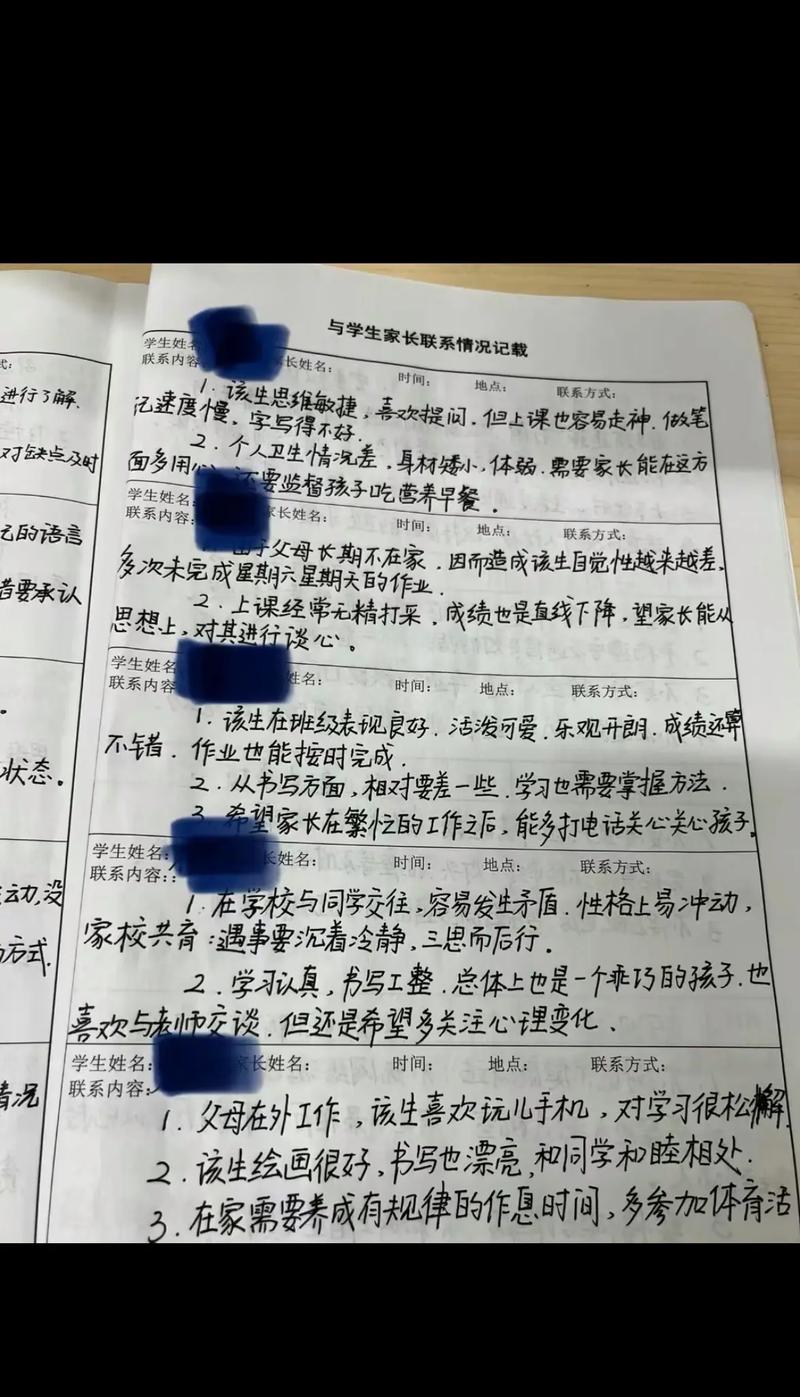 与学生家长联系情况记载
式:
进行了解.
对缺点及时
的语言
者要承认
状态。
动,没
方式.
情况
学生姓名 长姓名: 时间: 地点: 联系方式:
联系内容
1. 该生思维敏捷,喜欢提问.但上课也容易走神.做笔
记速度慢,字写得不好.
2. 个人卫生情况差,身材矮小,体弱.需要家长能在这方
面多用心 还要监督孩子吃营养早餐.
学生姓名: 家长姓名: 时间: 地点: 联系方式:
联系内容:
由于父母长期不在家.因而造成该生自觉性越来越差,
多次未完成星期六星期天的作业.
2. 上课经常无精打采.成绩也是直线下降,望家长能从
思想上,对其进行谈心。
学生姓名: 姓名: 时间: 地点: 联系方式:
联系内容
1. 该生在班级表现良好.活泼可爱.乐观开朗.成绩还算
不错.作业也能按时完成.
2. 从书写方面,相对要差一些.学习也需要掌握方法.
3. 希望家长在繁忙的工作之后,能多打电话关心关心孩子.
学生姓名: 长姓名: 时间: 地点: 联系方式:
联系内容:
1. 在学校与同学交往,容易发生矛盾.性格上易冲动,
家校共育:遇事要沉着冷静,三思而后行.
2. 学习认真,书写工整.总体上也是一个乖巧的孩子.也
喜欢与老师交谈.但还是希望多关注心理变化、
学生姓名: 家长姓名: 时间: 地点: 联系方式:
联系内容:
1. 父母在外工作,该生喜欢玩儿手机,对学习很松懈.
2. 该生绘画很好,书写也漂亮,和同学和睦相处.
3. 在家需要养成有规律的作息时间,多参加体育活